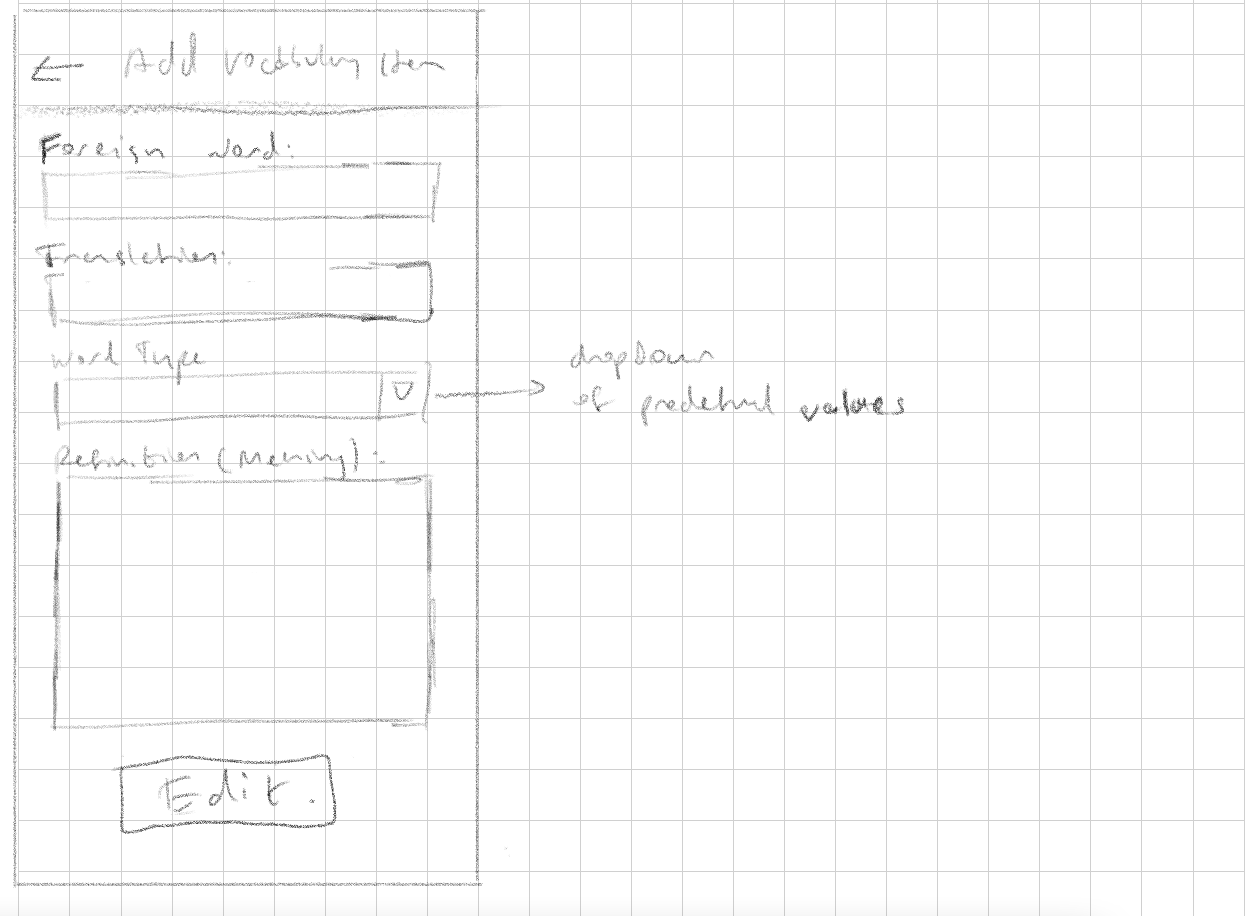 ← Add Vocabulary Item
Foreign Word:
Translation:
Word Type
dropdown
of predefined values
Definition (Meaning):
Edit.